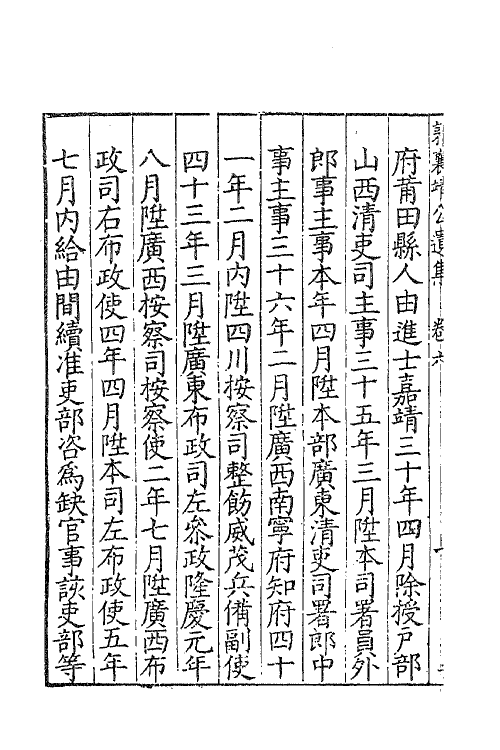 郭襄靖公遺集 卷六
府莆田縣人由進士嘉靖三十年四月除授戸部
山西清吏司主事三十五年三月陞本司署員外
郎事主事本年四月陞本部廣東清吏司署郎中
事主事三十六年二月陞廣西南寧府知府四十
一年二月内陞四川按察司整飭威茂兵備副使
四十三年三月陞廣東布政司左叅政隆慶元年
八月陞廣西按察司按察使二年七月陞廣西布
政司右布政使四年四月陞本司左布政使五年
七月内給由間續准吏部咨爲缺官事該吏部等